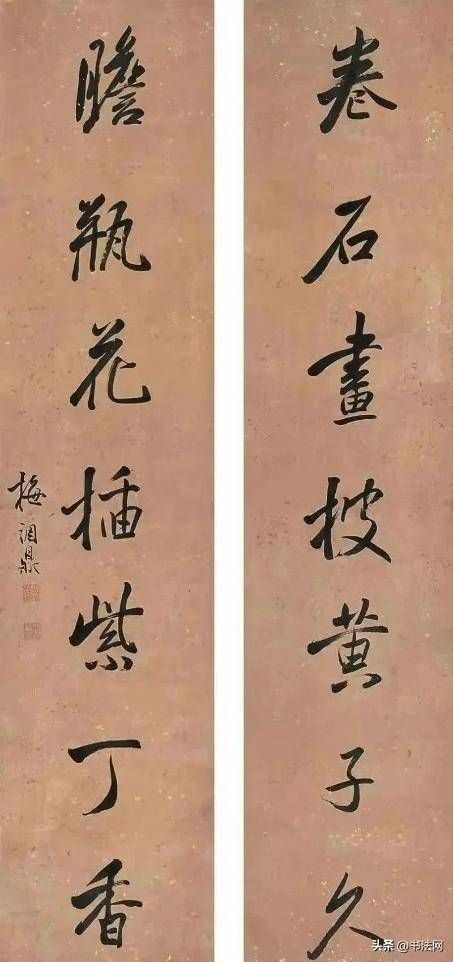 卷石畫披黃子久
瞻瓶花插紫丁香
梅調鼎
头条 @书法网